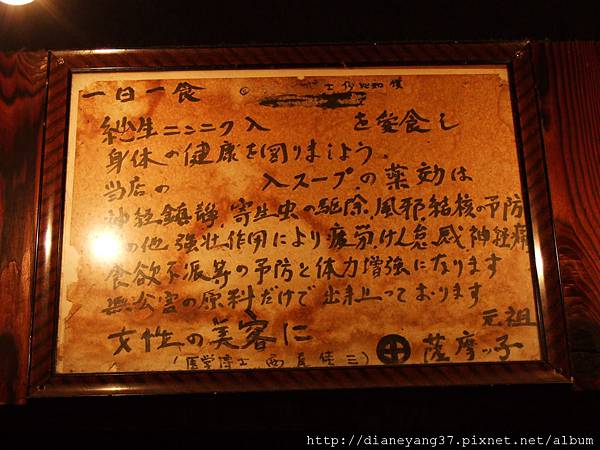 一日一食
純生ニンニク入 を愛食し
身体の健康を図りましよう。
当店の 入スープの薬効は
神経鎮静、寄生虫の駆除、風邪結核の予防
の他、強壮作用により疲労けん怠感神経痛
食欲不振等の予防と体力増強になります
無公害の原料だけで出来上っております
女性の美容に
元祖
(医学博士 西 三)
薩摩ッ子
http://dianeyang37.pixnet.net/album